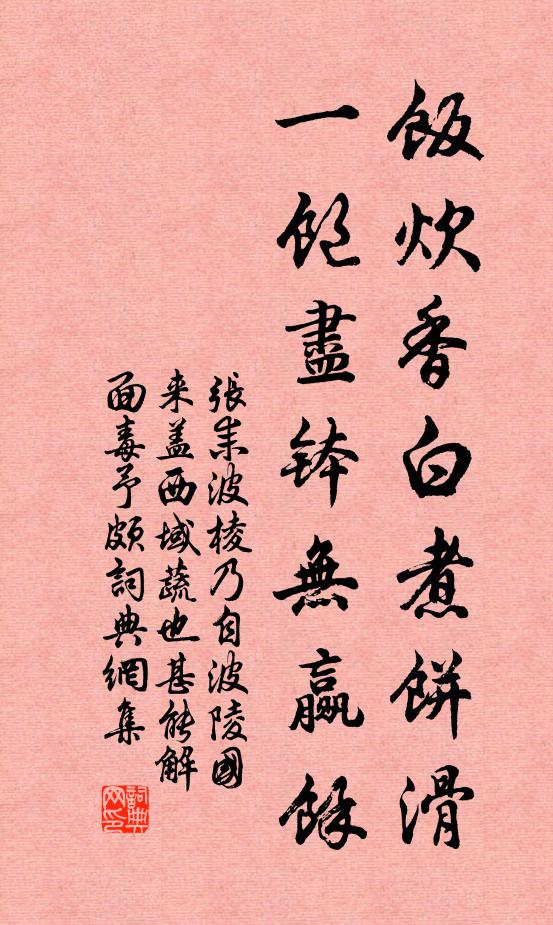 飯炊香白煮餅滑
一飽盡鉢無贏餘
張耒波棱乃自波陵國
来蓋西域蔬也甚能解
面毒予頗詞典網集
詞典网印